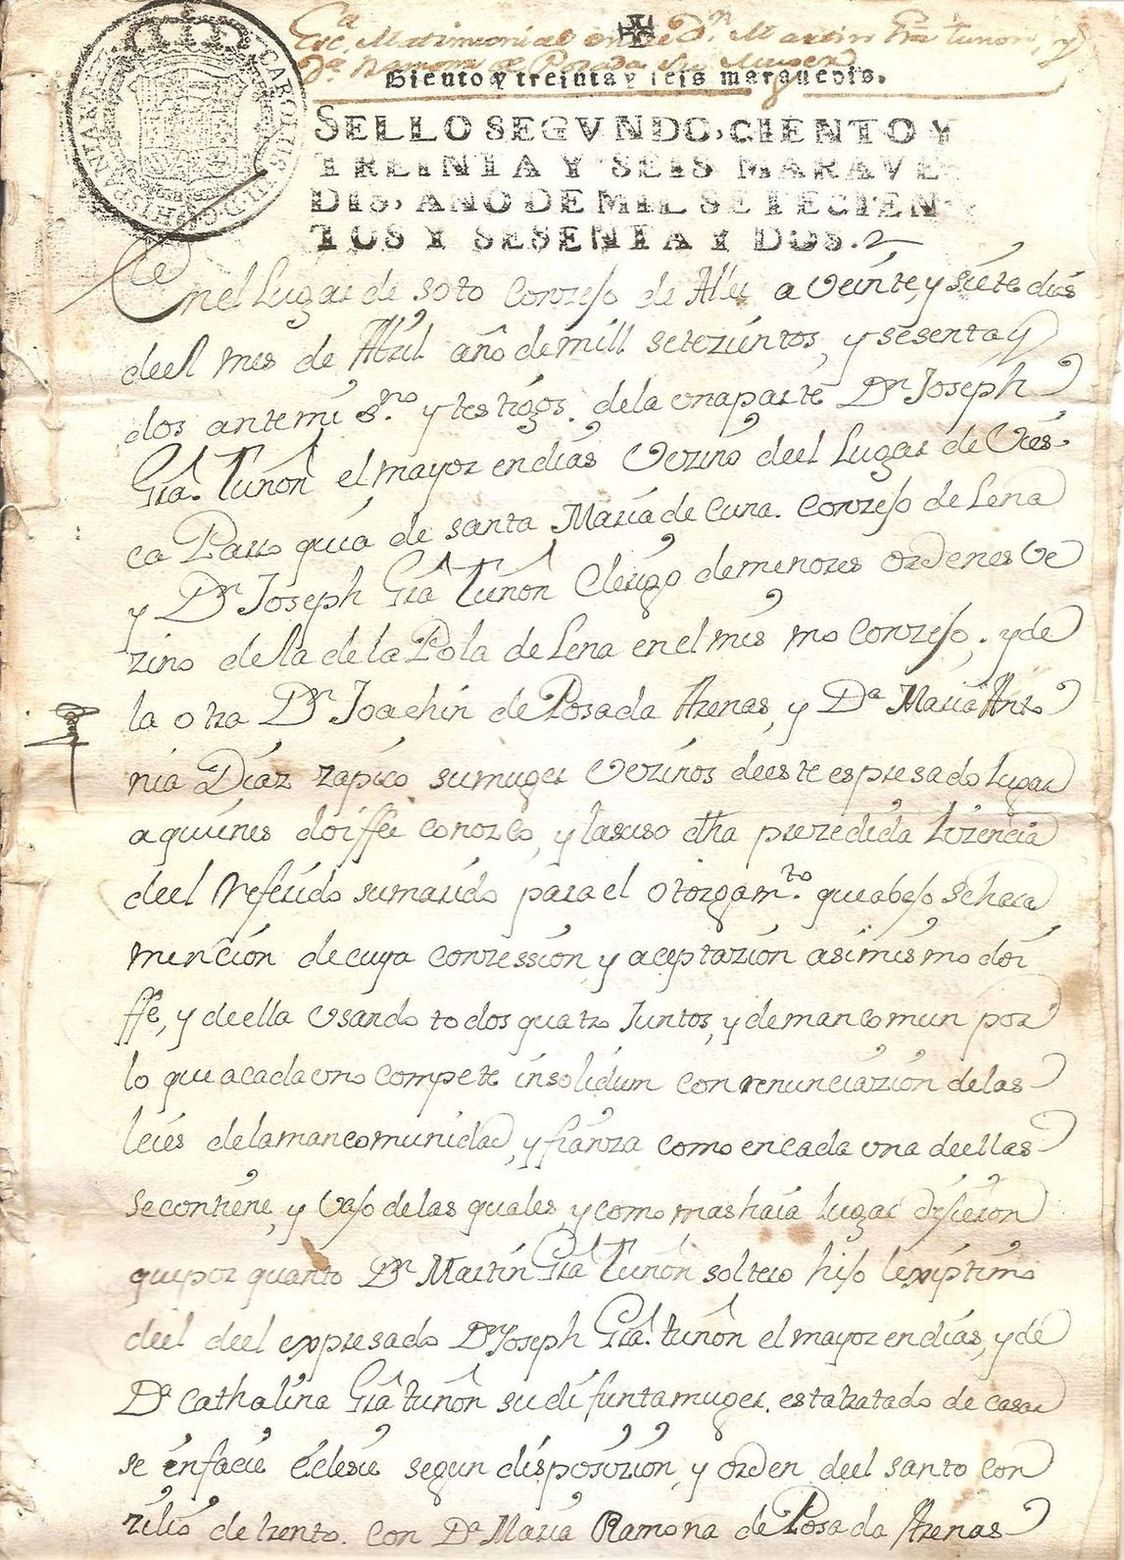 Esc.ª Matrimonial entre D.ⁿ Martin Gra tuñon, y
D.ª Ramona de Posada su Muger
Ciento y treinta y seis marauedis.
SELLO SEGVNDO, CIENTO Y
TREINTA Y SEIS MARAVE
DIS, AÑO DE MIL SETECIEN
TOS Y SESENTA Y DOS.
CAROLUS III D G HISPANIAR
En el Lugar de soto Conzejo de Aller a Veinte, y siete dias
deel mes de Abril año de mill setezientos, y sesenta y
dos ante mi s.no y testigos. de la una parte Dn Joseph
Gra. Tuñon el mayor en dias Vezino deel Lugar de Vies
ca Parroquia de santa Maria de Cuna. Conzejo de Lena
y Dn Joseph Gra Tuñon Clerigo de menores ordenes Ve
zino de la de la Pola de Lena en el mismo Conzejo, y de
la otra Dn Joachin de Posada Arenas, y Da Maria Anto
nia Diaz zapico su muger Vezinos de este espresado Lugar
a quienes doi ffee conozco, y la suso dha prezedida Lizencia
deel Referido su marido para el otorgam.to que abajo se hara
mencion de cuya conzession, y aceptazion asimismo doi
ffe, y de ella Usando todos quatro Juntos, y de mancomun por
lo que a cada uno compete insolidum con renunciazion de las
leies de la mancomunidad, y fianza como en cada una de ellas
se contiene, y Vajo de las quales, y como mas haia lugar dijeron
que por quanto Dn Martin Gra Tuñon soltero hijo lexiptimo
deel deel expresado Dn Joseph Gra. tuñon el mayor en dias, y de
Da Cathalina Gra tuñon su difunta muger, esta tratado de casar
se en facie Eclesie segun disposizion, y orden deel santo con
zilio de trento. con Da Maria Ramona de Posada Arenas